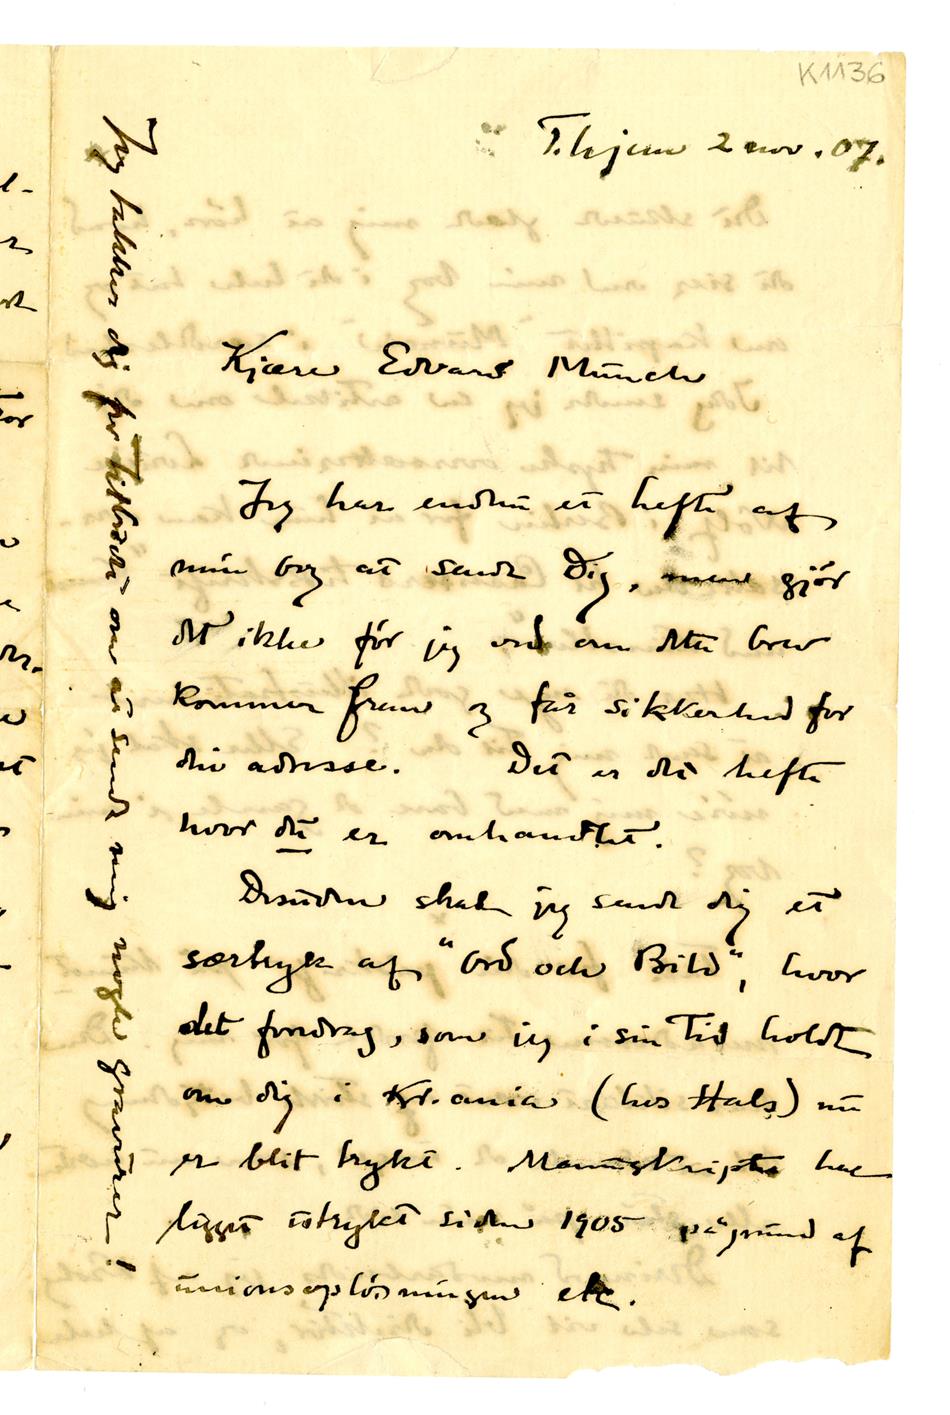 K1136
T.hjem 2 nov. 07.
Kjære Edvard Munch
Jeg har endnu et hefte af
min bog at sende Dig, men gjør
det ikke før jeg ved om dette brev
kommer frem og får sikkerhed for
din adresse. Det er det hefte
hvor du er omhandlet.
Desuden skal jeg sende dig et
særtryk af "Ord och Bild", hvor
det foredrag, som jeg i sin Tid holdt
om dig i Kr.ania (hos Hals) nu
er blit trykt. Manuskriptet har
ligget utrykt siden 1905 pågrund af
unionsopløsningen etc.
Jeg takker dig for tilbudet om at sende mig nogle gravurer!